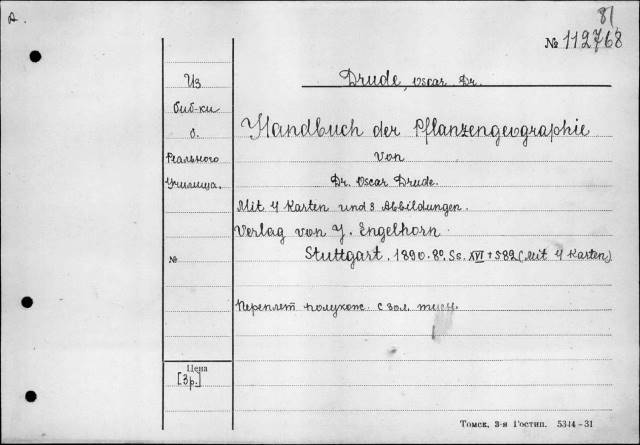 А.
81
№ 112768
Из
биб-ки
б.
Реального
Училища.
№
Цена
[3 р.]
Drude, Oscar Dr.
Handbuch der Pflanzengeographie
von
Dr. Oscar Drude.
Mit 4 Karten und 3 Abbildungen.
Verlag von J. Engelhorn
Stuttgart. 1890. 8º. Ss. XVI + 582 (Mit 4 Karten)
Переплет полукож. с зол. тисн.
Томск, 3-я Гостип. 5344-31